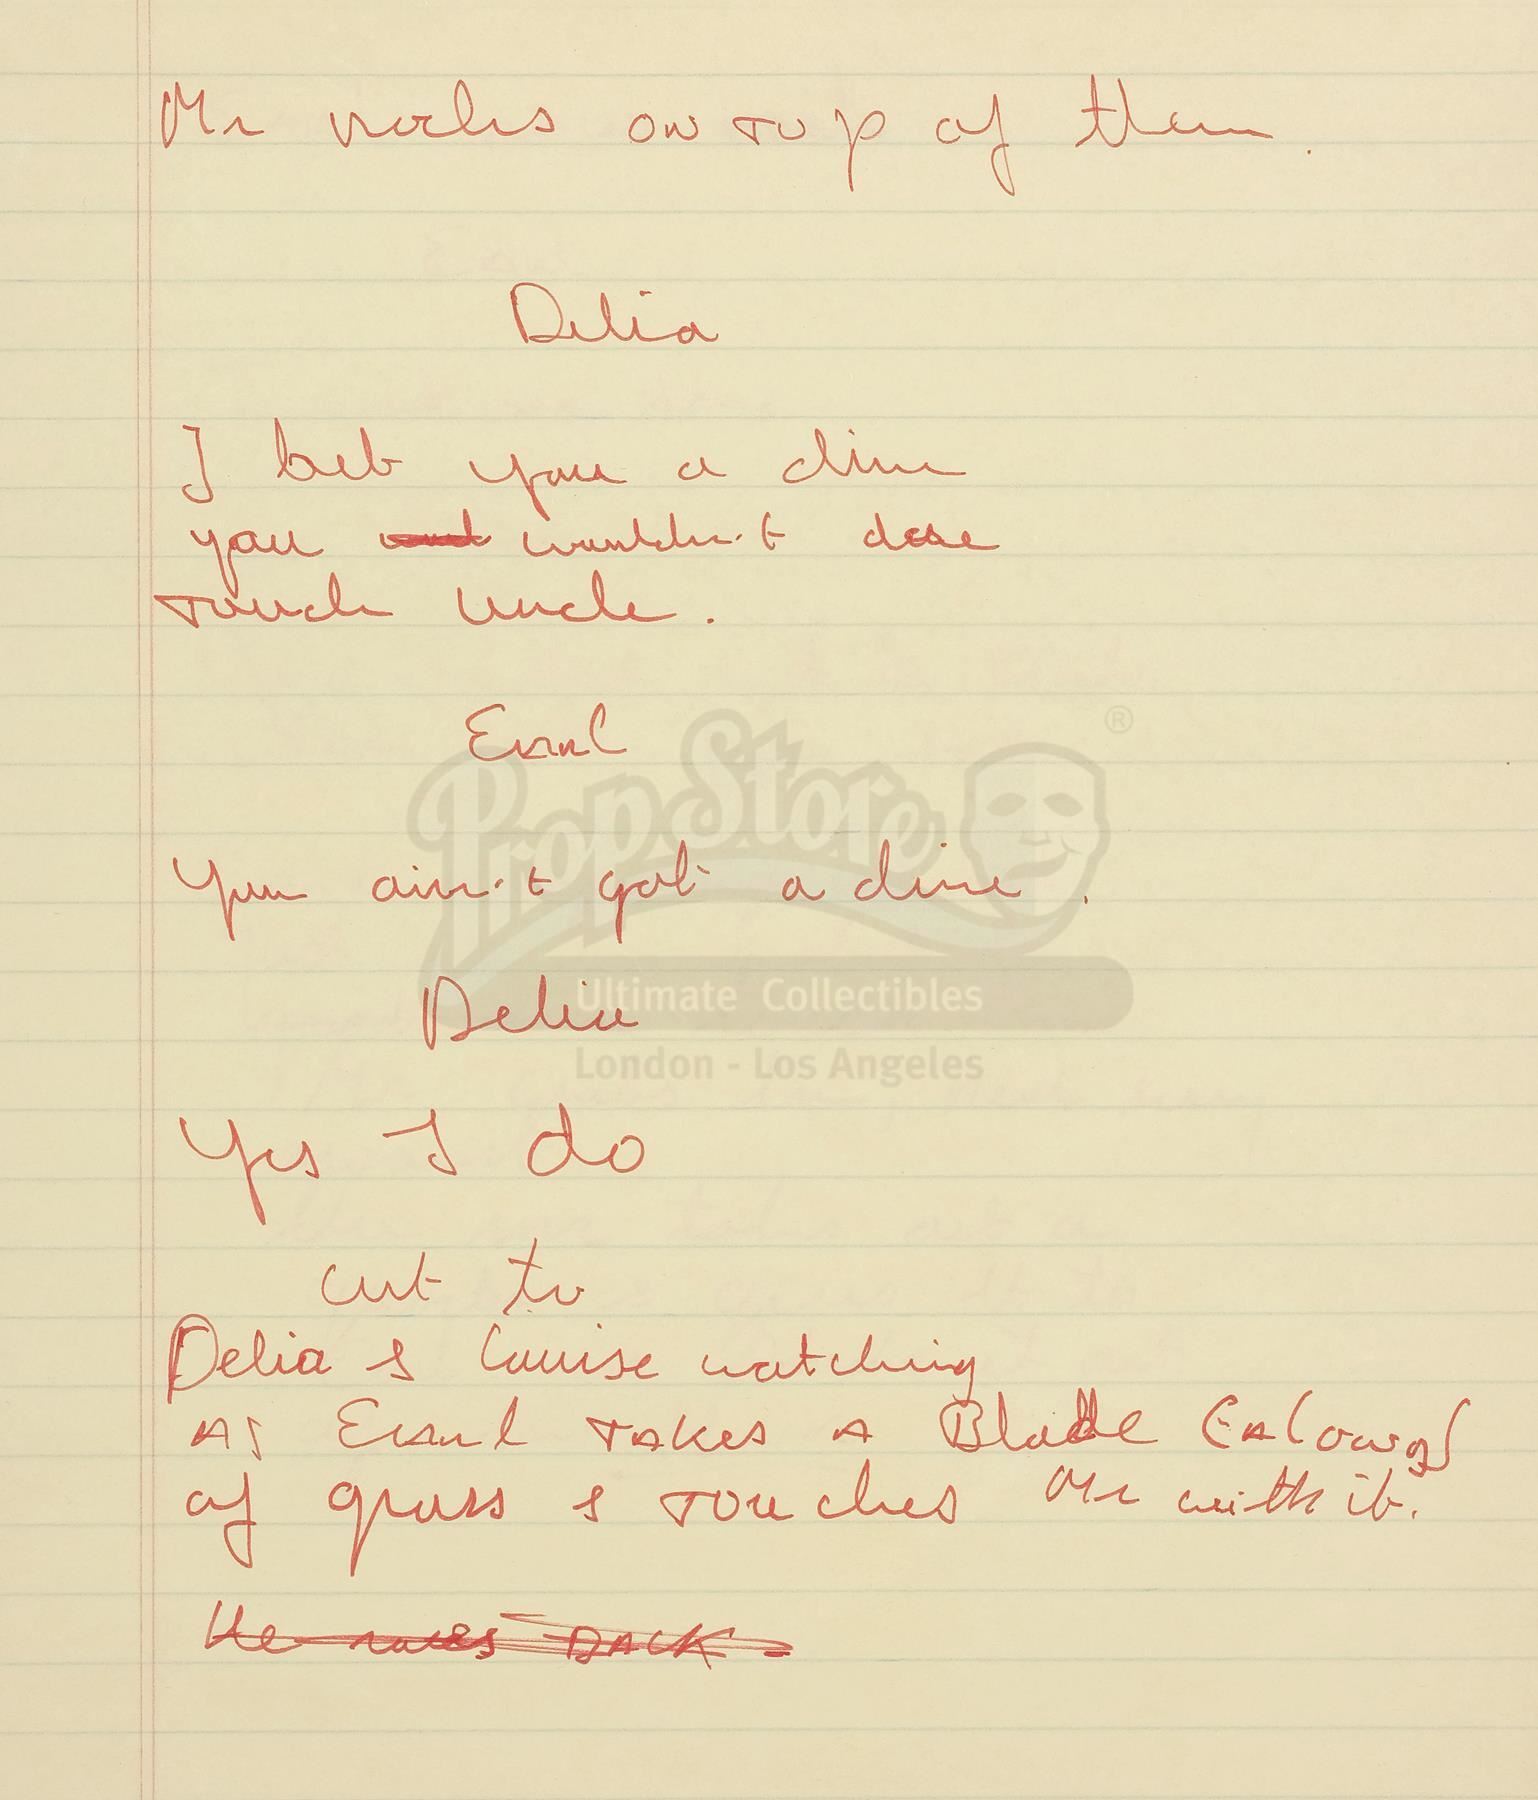 Mr rocks on top of them.
Delia
I bet you a dime
you wouldn't dare
touch uncle.
Earnl
You ain't got a dime.
Delia
Yes I do
cut to
Delia & Louise watching
As Earnl takes A Blade
of grass & touches Mr with it.
He races BACK.
PropStore ®
Ultimate Collectibles
London - Los Angeles